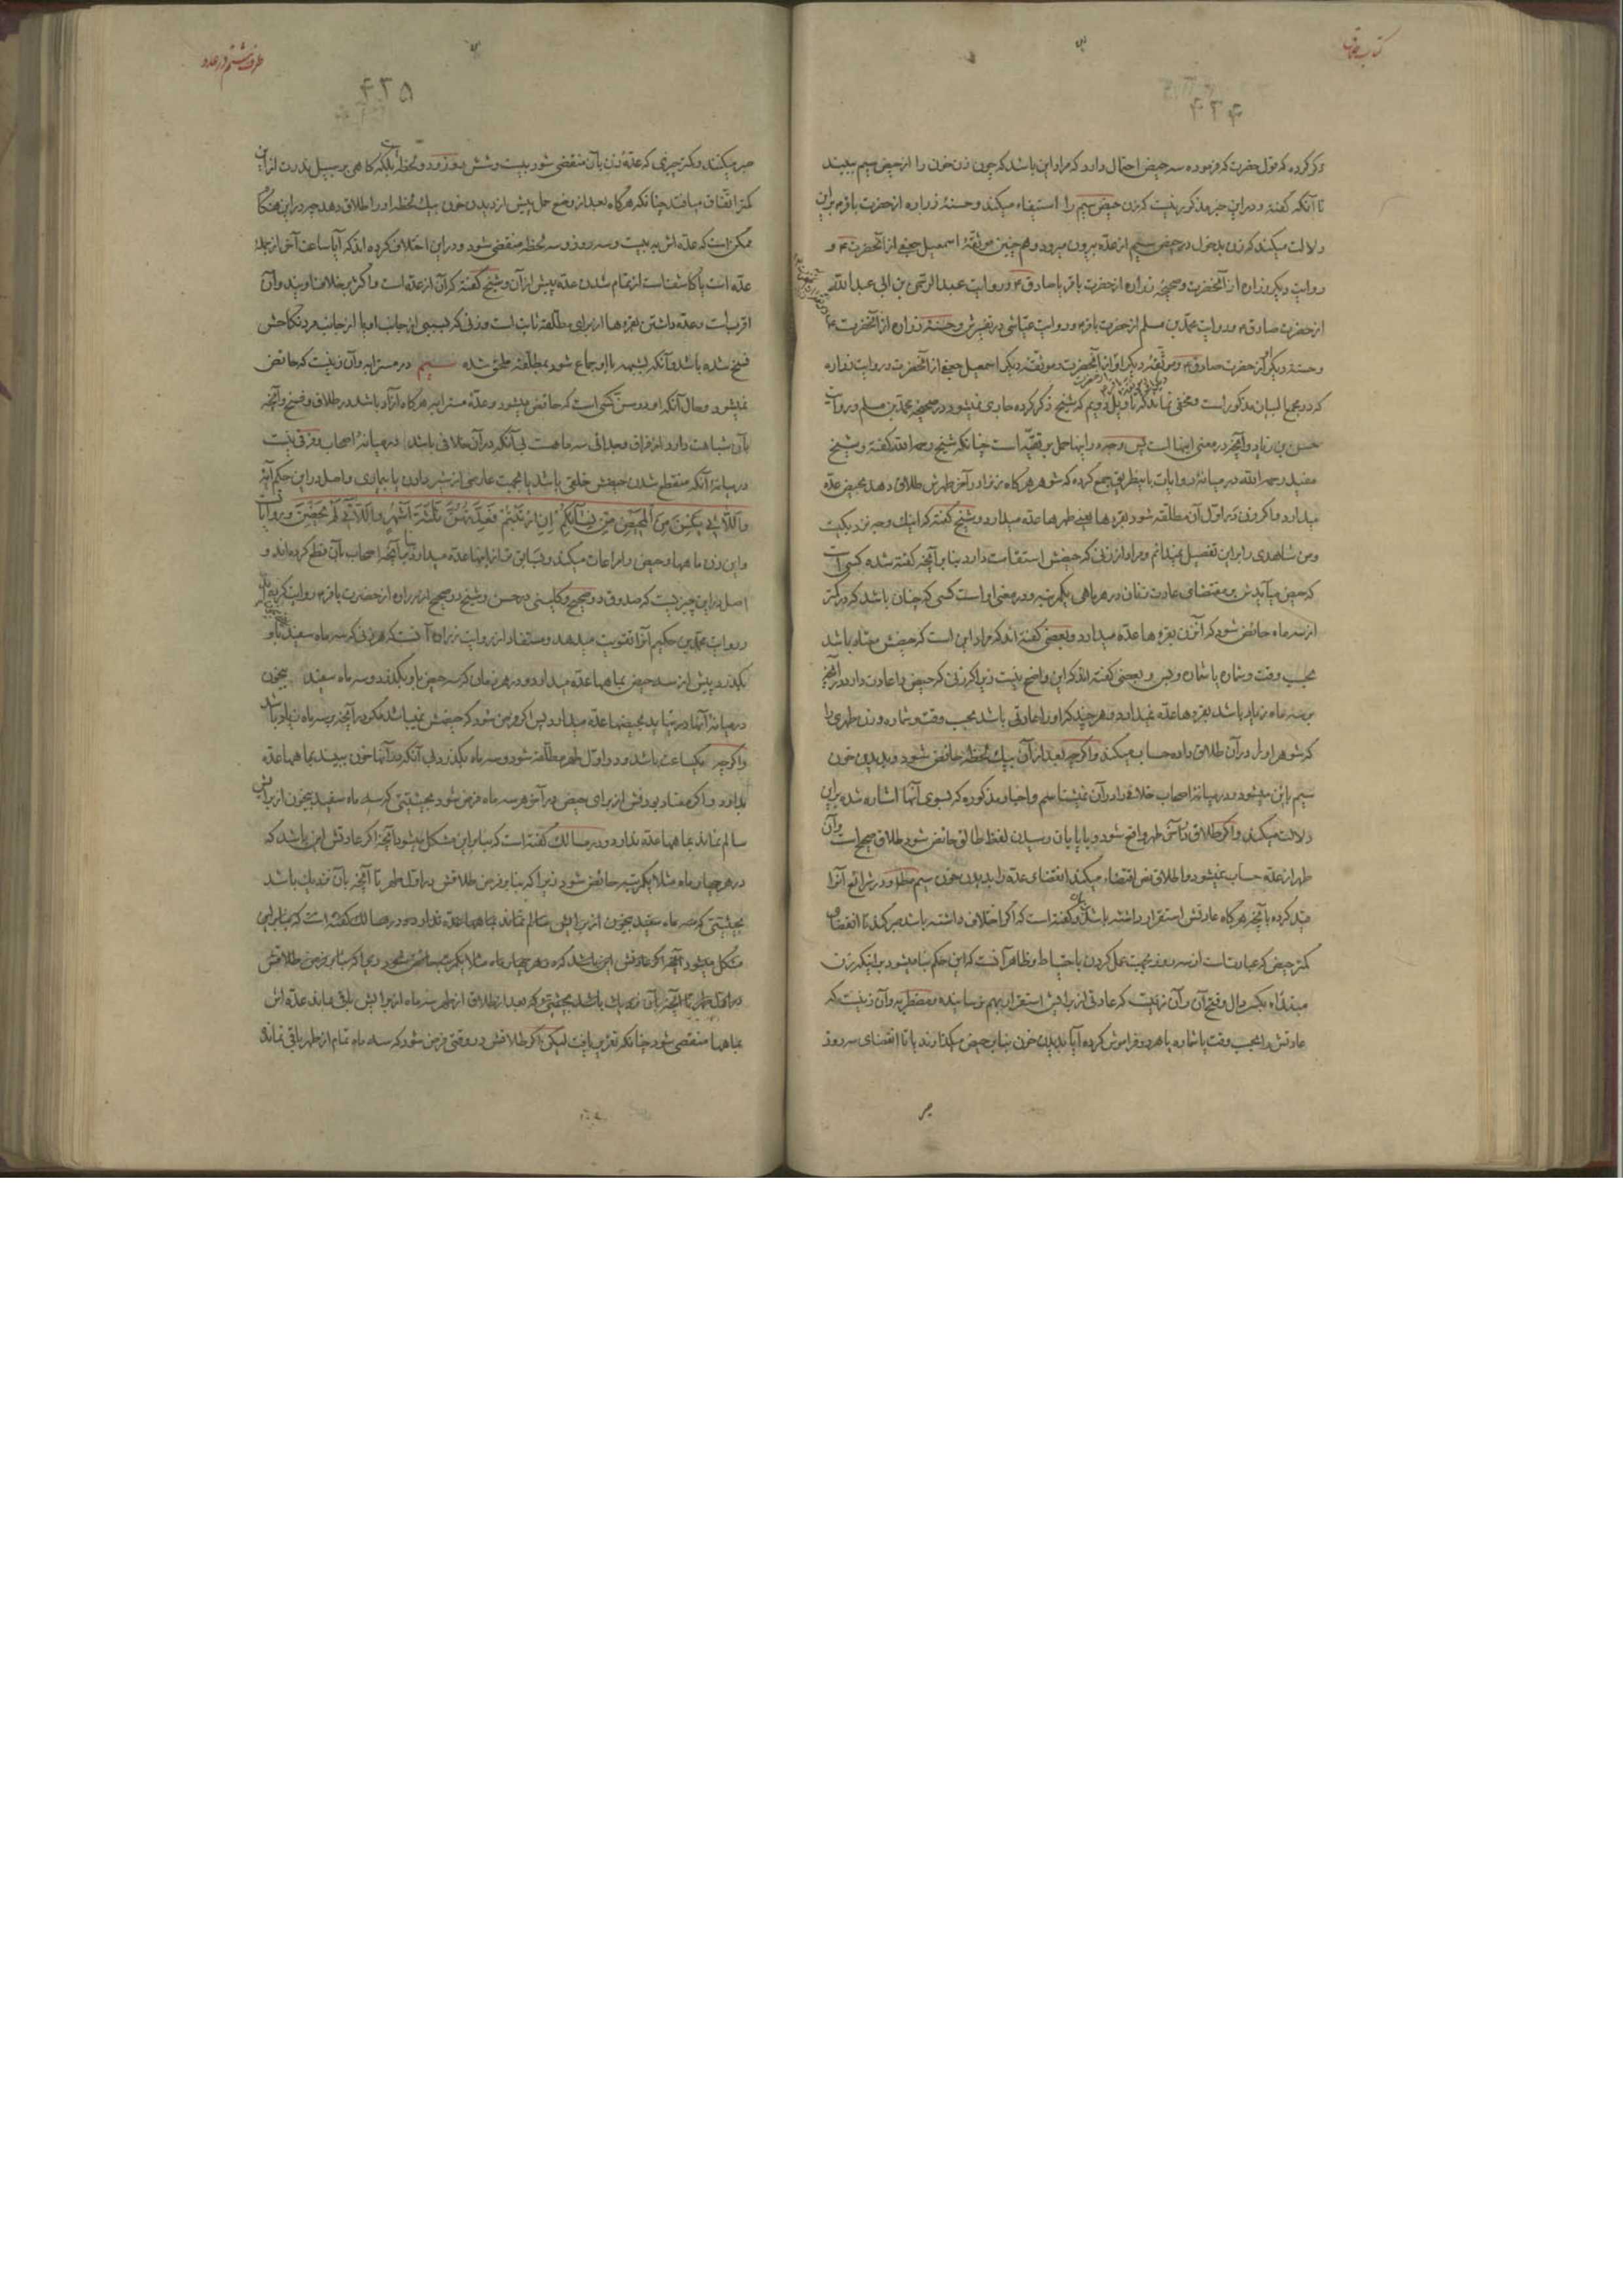 کتاب طلاق
۴۳۴
ذکر کرده که قول حضرت که فرموده سه حیض احتمال دارد که مراد این باشد که چون زن خون را از حیض سیم ببیند
تا آنکه گفته و در این خبر مذکور نیست که زن حیض سیم را استیفاء میکند و حسنهٔ زراره از حضرت باقر۴ براین
دلالت میکند که زن بدخول در حیض سیم از عدّه بیرون میرود و هم چنین موثقهٔ اسمعیل جعفی از آنحضرت ۴ و
روایت دیگر زراره از آنحضرت و صحیحهٔ زراره از حضرت باقر یا صادق ۴ و روایت عبد الرحمن بن ابی عبد الله
از حضرت صادق ۴ و روایت محمّد بن مسلم از حضرت باقر۴ و روایت عیّاشی در تفسیرش و حسنهٔ زراره از آنحضرت ۴
و حسنهٔ دیگر از حضرت صادق۴ و موثّقهٔ دیگر او از آنحضرت و موثقهٔ دیگر اسمعیل جعفی از آنحضرت و روایت زراره
که در مجمع البیان مذکور است و مخفی نماند که تاویل دویم که شیخ ذکر کرده جاری نمیشود در صحیحهٔ محمّد بن مسلم و روایت
حسن بن زیاد و آنچه در معنی اینها است پس وجه در اینها حمل بر تقیّه است چنانکه شیخ رحمه الله گفته و شیخ
مفید رحمه الله در میانهٔ روایات باینطریق جمع کرده که شوهر هرگاه زنرا در آخر طهرش طلاق دهد بحیض عدّه
میدارد و اگر زن در اوّل آن مطلّقه شود بقره ها یعنی طهرها عدّه میدارد و شیخ گفته که اینک وجه نزدیکیست
و من شاهدی را بر این تفصیل نمیدانم و مراد از زنی که حیضش استقامت دارد بنابر آنچه گفته شده کسی است
که حیض میآیدش بر مقتضای عادت زنان در هر ماهی یکمرتبه و در معنی او است کسی که چنان باشد که در کمتر
از سه ماه حائض شود که آنزن بقره ها عدّه میدارد و بعضی گفته اند که مراد این است که حیضش معتاد باشد
بحسب وقت و شماره یا شماره و بس و بعضی گفته اند که این واضح نیست زیرا که زنی که حیض را عادت دارد در آنچه
بر سه ماه زیاد باشد بقره ها عدّه نمیدارد و هر چند که او را عادتی باشد بحسب وقت و شماره و زن طهری را
که شوهر او را در آن طلاق داده حساب میکند و اگرچه بعد از آن بیک لحظه حائض شود و بدیدن خون
سیم باین میشود و در میانهٔ اصحاب خلافی را در آن نمیشناسم و اخبار مذکوره که بسوی آنها اشاره شد براین
دلالت میکند و اگر طلاق در آخر طهر واقع شود و با پایان رسیدن لفظ طالق حائض شود طلاق صحیح است و آن
طهر از عدّه حساب نمیشود و اطلاق نص اقتضاء میکند انقضای عدّه را بدیدن خون سیم مطلقا و در شرائع آنرا
قید کرده بآنچه هرگاه عادتش استقرار داشته باشد و گفته است که اگر اختلاف داشته باشد صبر کند تا انقضای
کمتر حیض که عبارت است از سه روز بجهت عمل کردن باحتیاط و ظاهر آنست که این حکم بنا میشود بر اینکه زن
مبتدئه بکسر دال و فتح آن و آن زنیست که عادتی از برایش استقرار بهم نرسانیده و مضطربه و آن زنیست که
عادتش را بحسب وقت یا شماره یا هر دو فراموش کرده آیا بدیدن خون بنا بر حیض میگذارند یا تا انقضای سه روز
طرف ششم در عدد
۴۳۵
صبر میکنند و کمتر چیزی که عدّهٔ زن بآن منقضی شود بیست و شش روز و دو لحظه است بلکه گاهی بر سبیل ندرت از این
کمتر اتّفاق میافتد چنانکه هرگاه بعد از وضع حمل پیش از دیدن خون بیک لحظه او را طلاق دهد چه در این هنگام
ممکن است که عدّه اش به بیست و سه روز و سه لحظه منقضی شود و در این اختلاف کرده اند که آیا ساعت آخر از جملهٔ
عدّه است یا کاشف است از تمام شدن عدّه پیش از آن و شیخ گفته که آن از عدّه است و اکثر بخلاف اویند و آن
اقرب است و عدّه داشتن بقره ها از برای مطلّقه ثابت است و زنی که بسببی از جانب او یا از جانب مرد نکاحش
فسخ شده باشد و آنکه بشبهه با او جماع شود بمطلّقه ملحق شده سیم در مسترابه و آن زنیست که حائض
نمیشود و حال آنکه او در سن کسی است که حائض میشود و عدّهٔ مسترابه هرگاه آزاد باشد در طلاق و فسخ و آنچه
بآن شباهت دارد از فراق و جدائی سه ماهست بی آنکه در آن خلافی باشد و در میانهٔ اصحاب فرقی نیست
در میانهٔ آنکه منقطع شدن حیضش خلقی باشد یا بجهت عارضی از شیر دادن یا بیماری و اصل در این حکم آیهٔ
وَاللَّائِي يَئِسْنَ مِنَ الْمَحِيضِ مِنْ نِسَائِكُمْ إِنِ ارْتَبْتُمْ فَعِدَّتُهُنَّ ثَلَثَةُ أَشْهُرٍ وَاللَّائِي لَمْ يَحِضْنَ و روایاتست
و این زن ماهها و حیض را مراعات میکند و بسابق تر از اینها عدّه میدارد بنا بآنچه اصحاب بآن قطع کرده اند و
اصل در این چیزیست که صدوق در صحیح و کلینی در حسن و شیخ در صحیح از زراره از حضرت باقر۴ روایت کرده
و روایت محمّد بن حکیم آنرا تقویت میدهد و مستفاد از روایت زراره آنست که هر زنی که سه ماه سفید باو
بگذرد پیش از سه حیض بماهها عدّه میدارد و در هر زمان که سه حیض باو بگذرد و سه ماه سفید بیخون
در میانهٔ آنها در نیاید بحیضها عدّه میدارد پس اگر فرض شود که حیضش نمیباشد مگر در آنچه بر سه ماه زیاد باشد
و اگرچه بیکساعت باشد و در اوّل طهر مطلّقه شود و سه ماه بگذرد بی آنکه در آنها خون ببیند بماهها عدّه
بدارد و اگر معتاد بودنش از برای حیض در آخر هر سه ماه فرض شود بحیثیّتی که سه ماه سفید بیخون از برایش
سالم نماند بماهها عدّه ندارد و در مسالک گفته است که بنابراین مشکل میشود آنچه اگر عادتش این باشد که
در هر چهار ماه مثلا یکمرتبه حائض شود زیرا که بنابر فرض طلاقش در اوّل طهر یا آنچه بآن نزدیک باشد
بحیثیّتی که سه ماه سفید بیخون از برایش سالم نماند بماهها عدّه ندارد و در مسالک گفته است که بنابراین
مشکل میشود آنچه اگر عادتش این باشد که در هر چهار ماه مثلا یکمرتبه حائض شود زیرا که بنابر فرض طلاقش
در اوّل طهر یا آنچه بآن نزدیک باشد بحیثیّتی که بعد از طلاق از طهر سه ماه از برایش باقی بماند عدّه اش
بماهها منقضی شود چنانکه تعریف یافت لیکن اگر طلاقش در وقتی فرض شود که سه ماه تمام از طهر باقی نماند